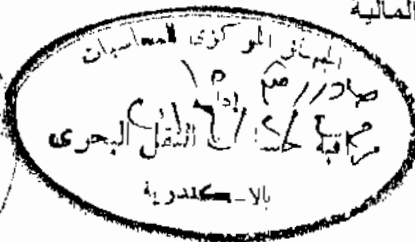 المالية
الجهاز المركزى للمحاسبات
صادر
مراقبة حسابات النقل البحرى
بالاسكندرية